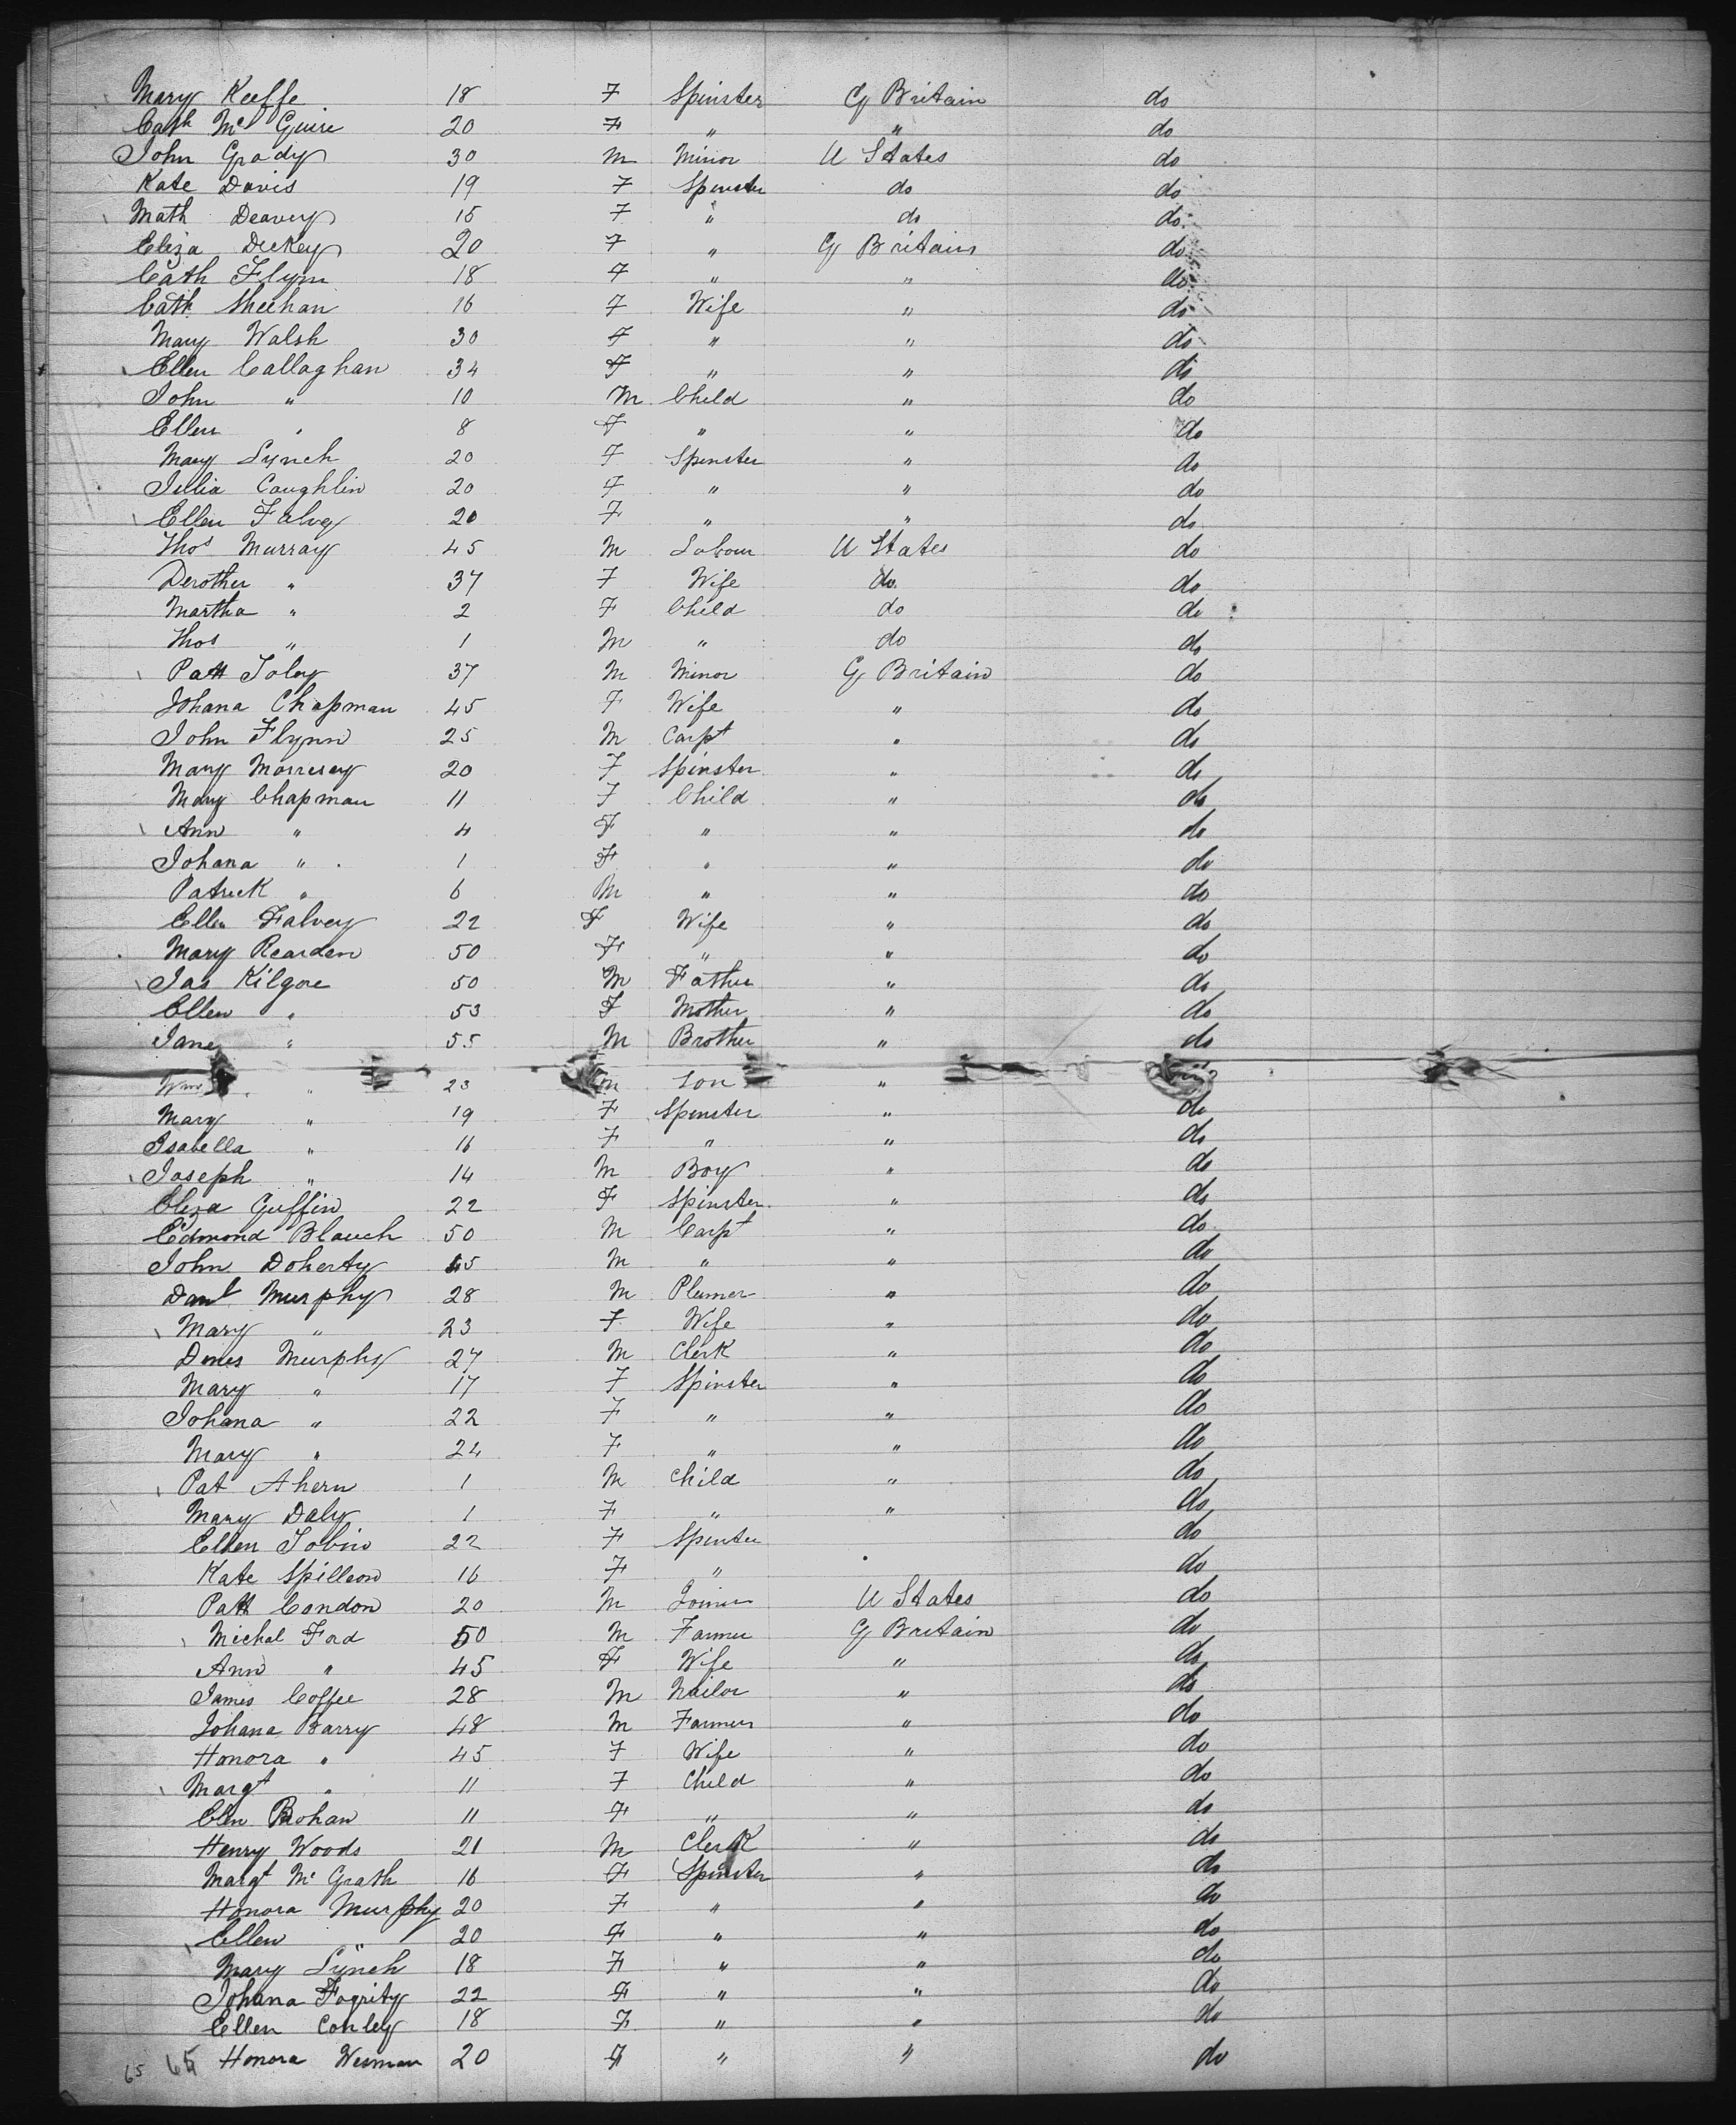 Mary Keeffe 18 F Spinster G Britain do
Cath Mc Guire 20 F " " do
John Grady 30 M Minor U States do
Kate Davis 19 F Spinster do do
Math Deavey 15 F " do do
Eliza Dickey 20 F " G Britain do
Cath Flynn 18 F " " do
Cath Sheehan 16 F Wife " do
Mary Walsh 30 F " " do
Ellen Callaghan 34 F " " do
John " 10 M Child " do
Ellen " 8 F " " do
Mary Lynch 20 F Spinster " do
Julia Caughlin 20 F " " do
Ellen Falvey 20 F " " do
Thos Murray 45 M Labour U States do
Derother " 37 F Wife do do
Martha " 2 F Child do do
Thos " 1 M " do do
Patt Foley 37 M Minor G Britain do
Johana Chapman 45 F Wife " do
John Flynn 25 M Carpt " do
Mary Morresey 20 F Spinster " do
Mary Chapman 11 F Child " do
Ann " 4 F " " do
Johana " 1 F " " do
Patrick " 6 M " " do
Ellen Falvey 22 F Wife " do
Mary Rearden 50 F " " do
Jas Kilgore 50 M Father " do
Ellen " 53 F Mother " do
Jane " 55 M Brother " do
Wm " 23 M Son "
Mary " 19 F Spinster " do
Isabella " 16 F " " do
Joseph " 14 M Boy " do
Eliza Guffin 22 F Spinster " do
Edmond Blauch 50 M Carpt " do
John Doherty 45 M " " do
Danl Murphy 28 M Plumer " do
Mary " 23 F Wife " do
Denes Murphy 27 M Clerk " do
Mary " 17 F Spinster " do
Johana " 22 F " " do
Mary " 24 F " " do
Pat Ahern 1 M Child " do
Mary Daly 1 F " " do
Ellen Tobin 22 F Spinster do
Kate Spilleon 16 F " do
Patt Condon 20 M Joiner U States do
Michel Ford 50 M Farmer G Britain do
Ann " 45 F Wife " do
James Coffee 28 M Nailor " do
Johana Barry 48 M Farmer " do
Honora " 45 F Wife " do
Margt " 11 F Child " do
Elen Bohan 11 F " " do
Henry Woods 21 M Clerk " do
Margt Mc Grath 16 F Spinster " do
Honora Murphy 20 F " " do
Ellen " 20 F " " do
Mary Lynch 18 F " " do
Johana Fogrity 22 F " " do
Ellen Conley 18 F " " do
65 65 Honora Wesman 20 F " " do